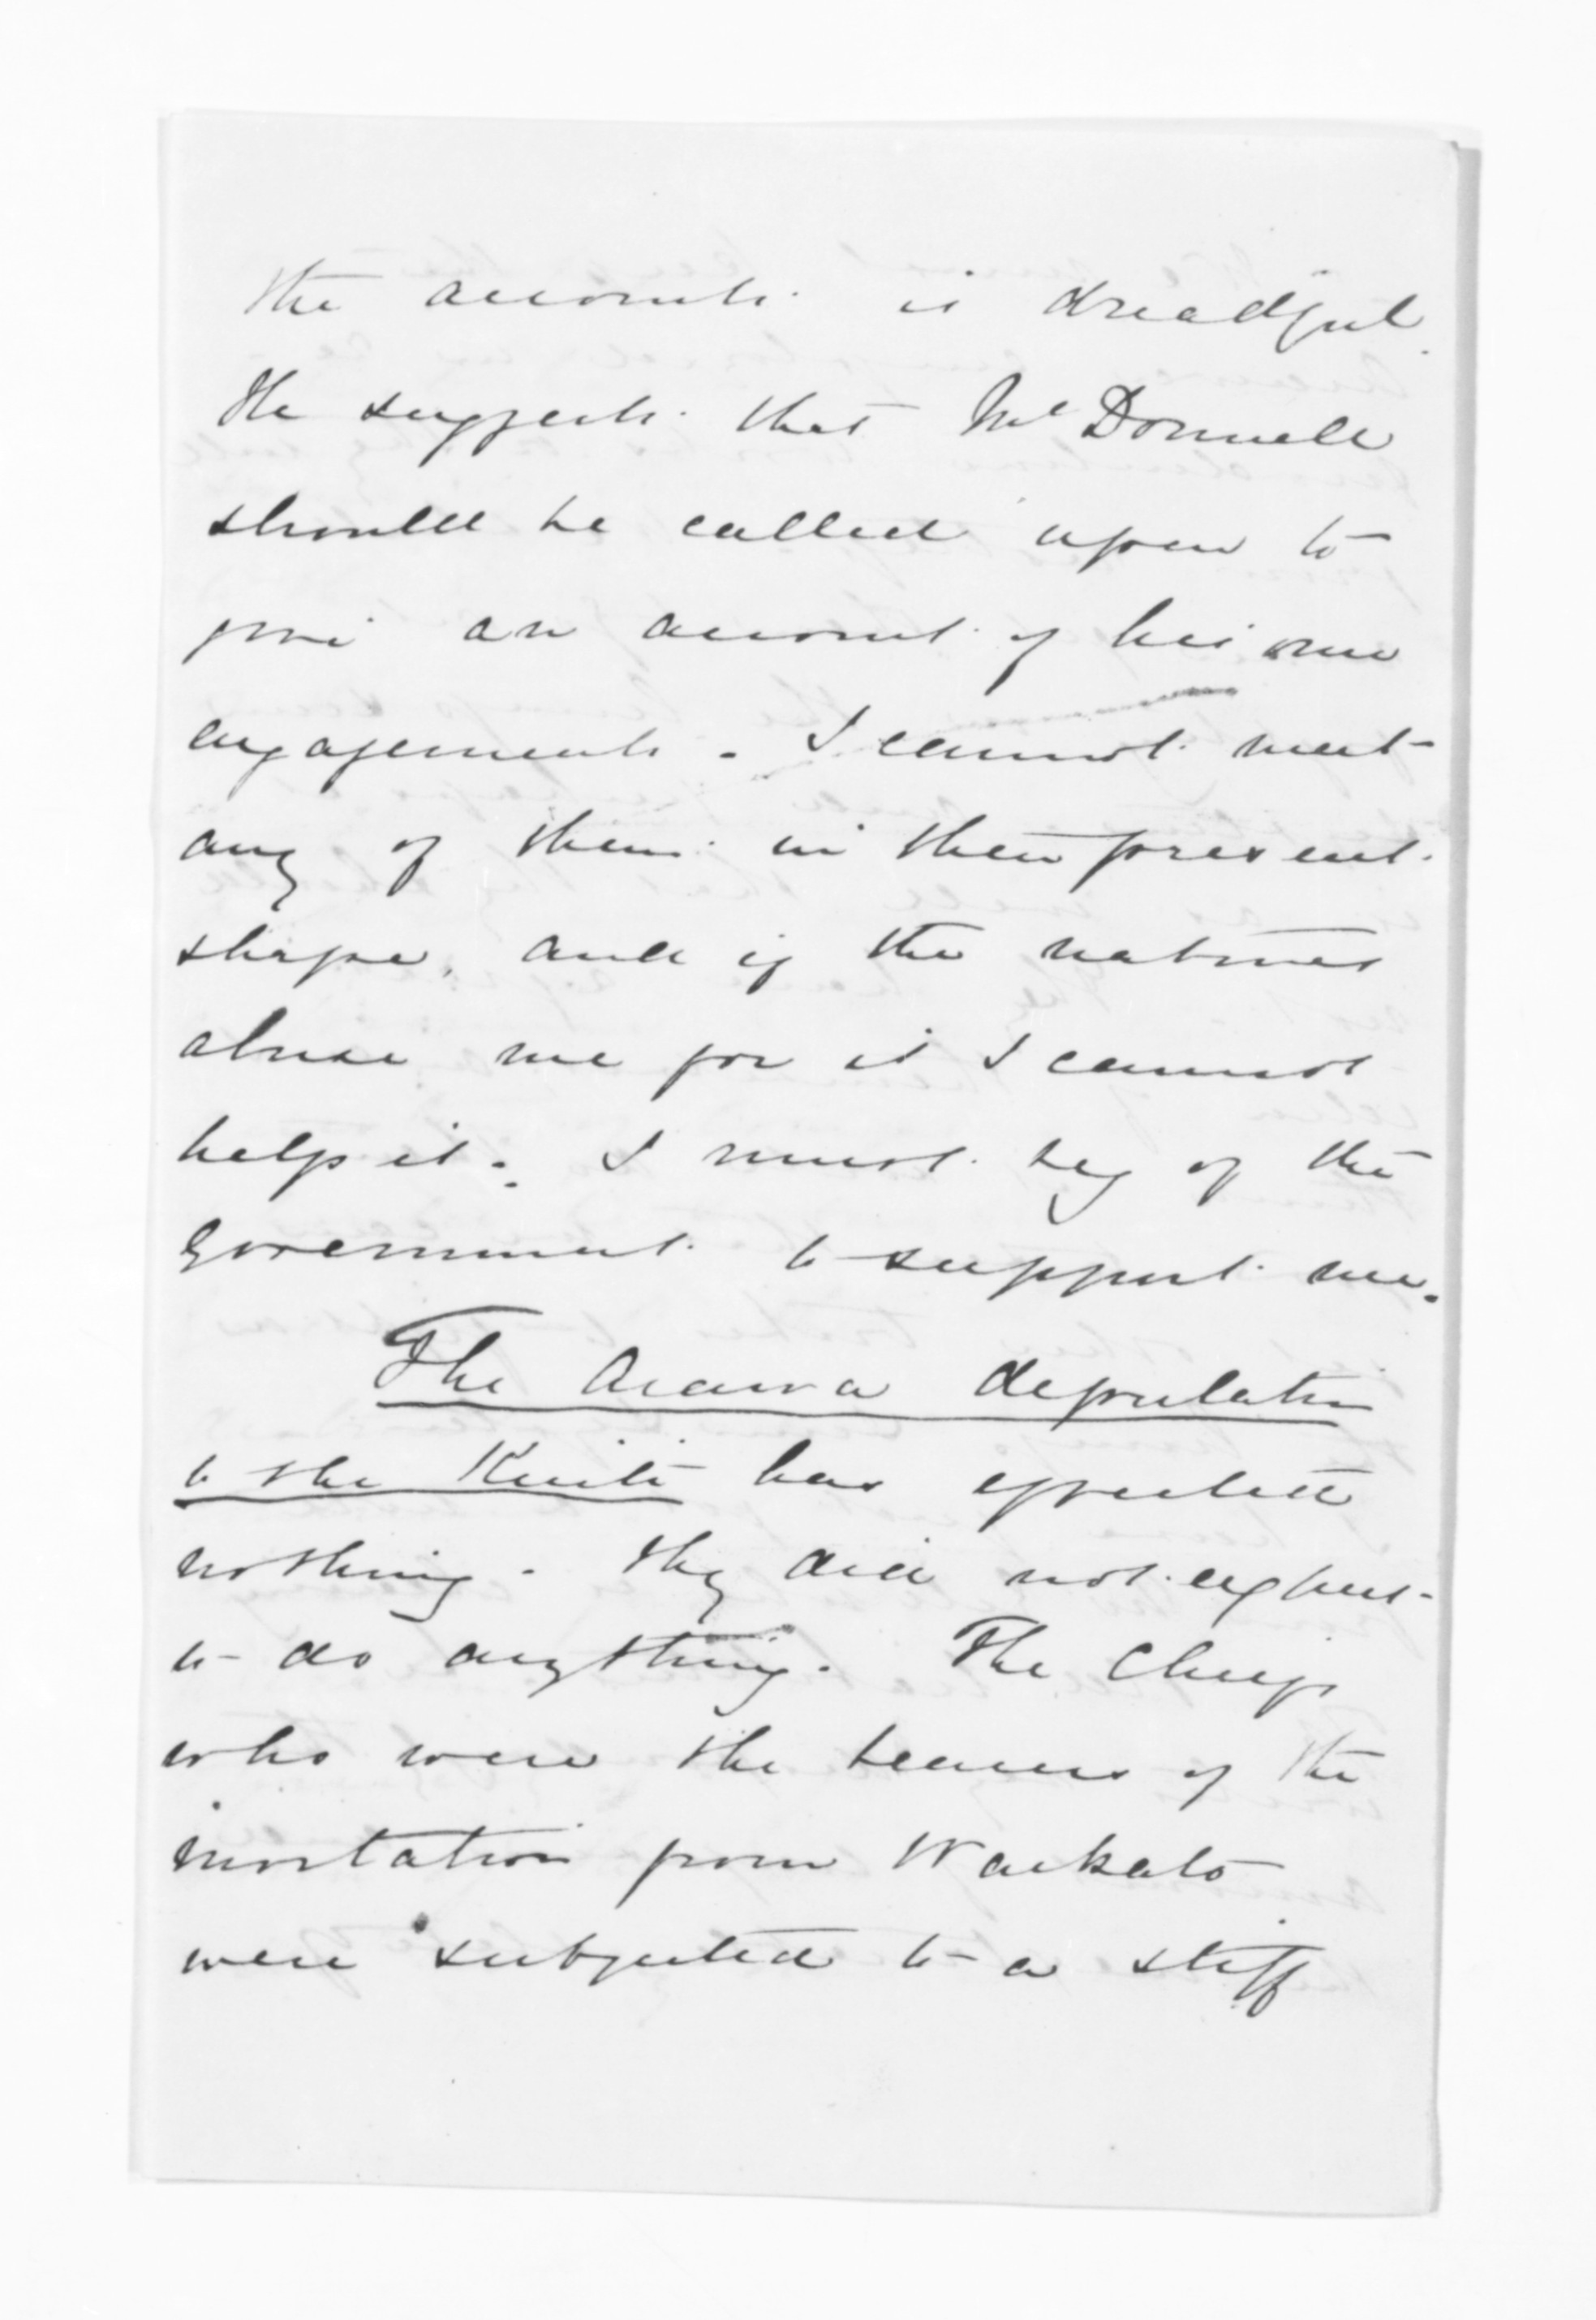 the accounts is dreadful.
He suggests that McDonnell
should be called upon to
give an account of his own
engagements. I cannot meet
any of them in their present
shape, and if the natives
abuse me for it I cannot
help it. I must beg of the
Government to support me.
The Arawa deputation
to the Kuiti has effected
nothing. They did not expect
to do anything. The Chiefs
who were the bearers of the
invitation from Waikato
were subjected to a stiff